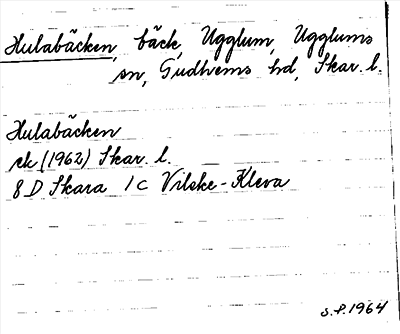 Hulabäcken, bäck, Ugglum, Ugglums
sn, Gudhems hd, Skar. l.
Hulabäcken
ek (1962) Skar. l.
8 D Skara 1 c Vilske-Kleva
S.P. 1964